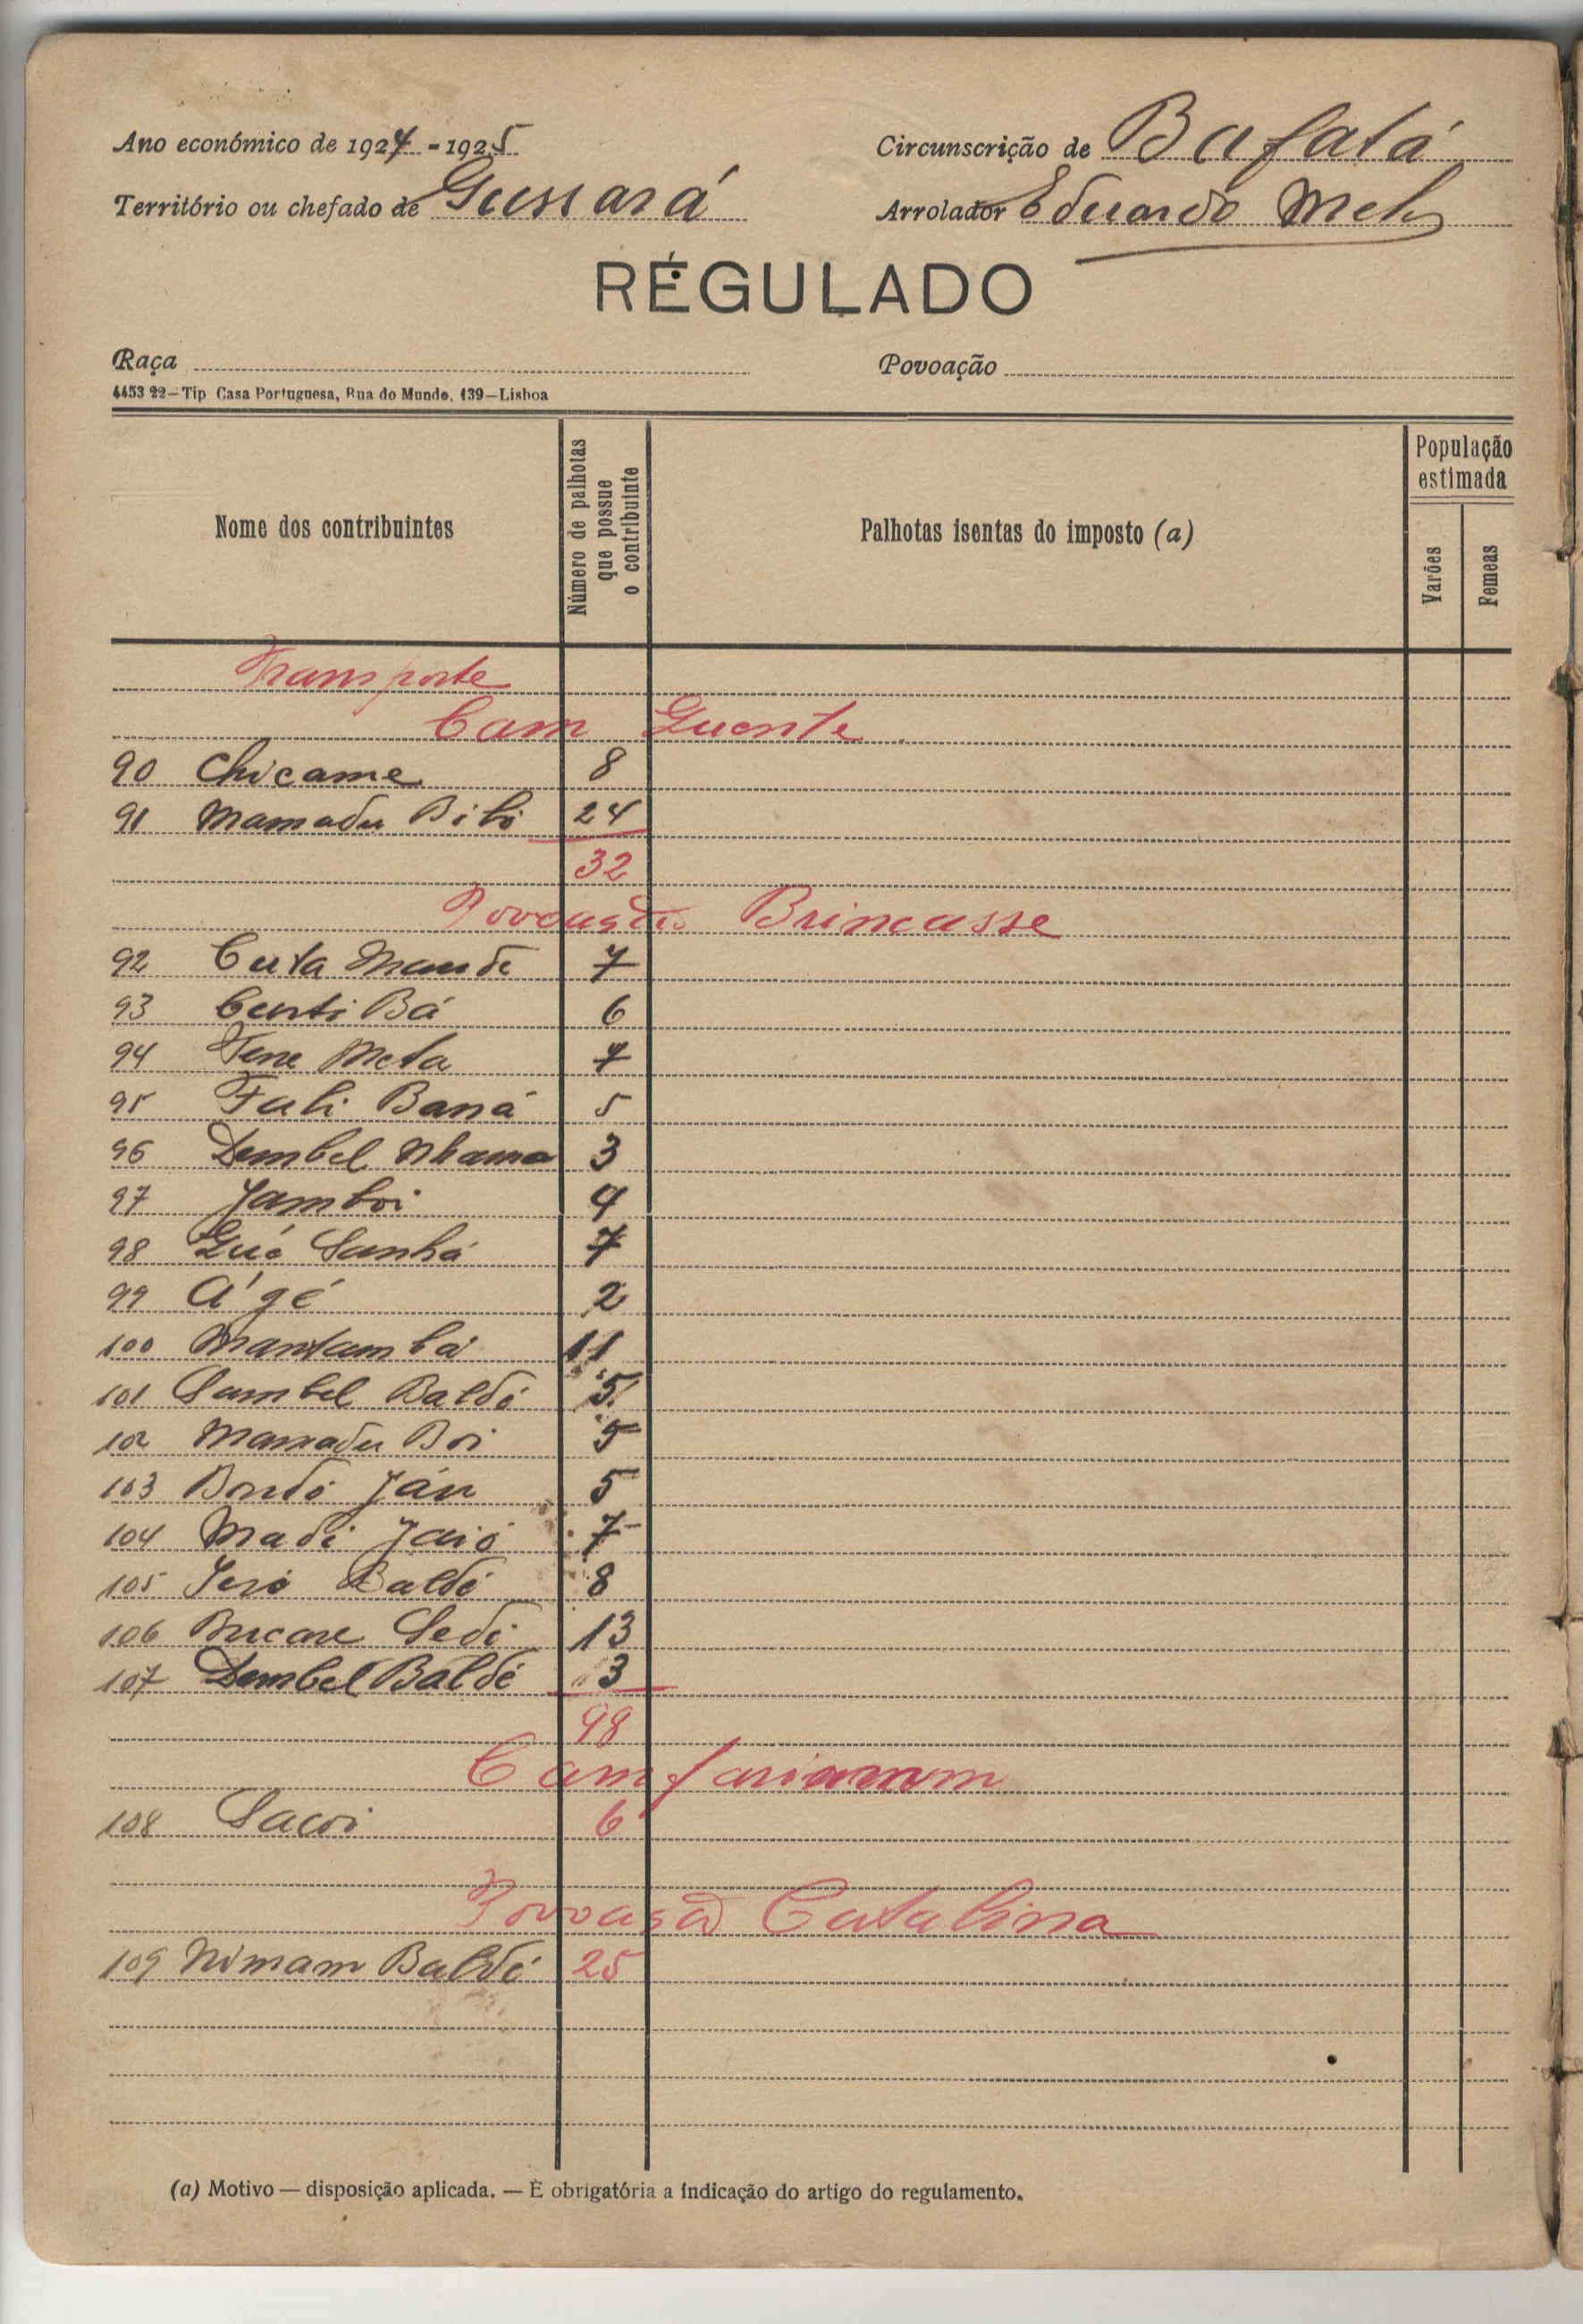 Ano económico de 1924-1925
Circunscrição de Bafatá
Território ou chefado de Gussará
Arrolador Eduardo Melo
RÉGULADO
Raça
Povoação
4453 22—Tip Casa Portuguesa, Rua do Mundo, 139—Lisboa
Nome dos contribuintes
Número de palhotas que possue o contribuinte
Palhotas isentas do imposto (a)
População estimada
Varões
Femeas
Transporte
Cam Quente
90 Chicame 8
91 Mamadu Bibi 24
32
Povoação Brincasse
92 Cuta Mandé 7
93 Cunti Bá 6
94 Tene Meta 7
95 Fali Baná 5
96 Dembel 3
97 Jamboi 4
98 Sanhá 7
99 A'gé 2
100 Mantambá 11
101 Sambel Baldé 5
102 Mamadu Boi 5
103 Jáu 5
104 Madi Jaió 7
105 Seró Baldé 8
106 Bucare Sedi 13
107 Dembel Baldé 3
98
108 Sacoi 6
Povoação Catalina
109 Nimam Baldé 25
(a) Motivo — disposição aplicada. — È obrigatória a indicação do artigo do regulamento.